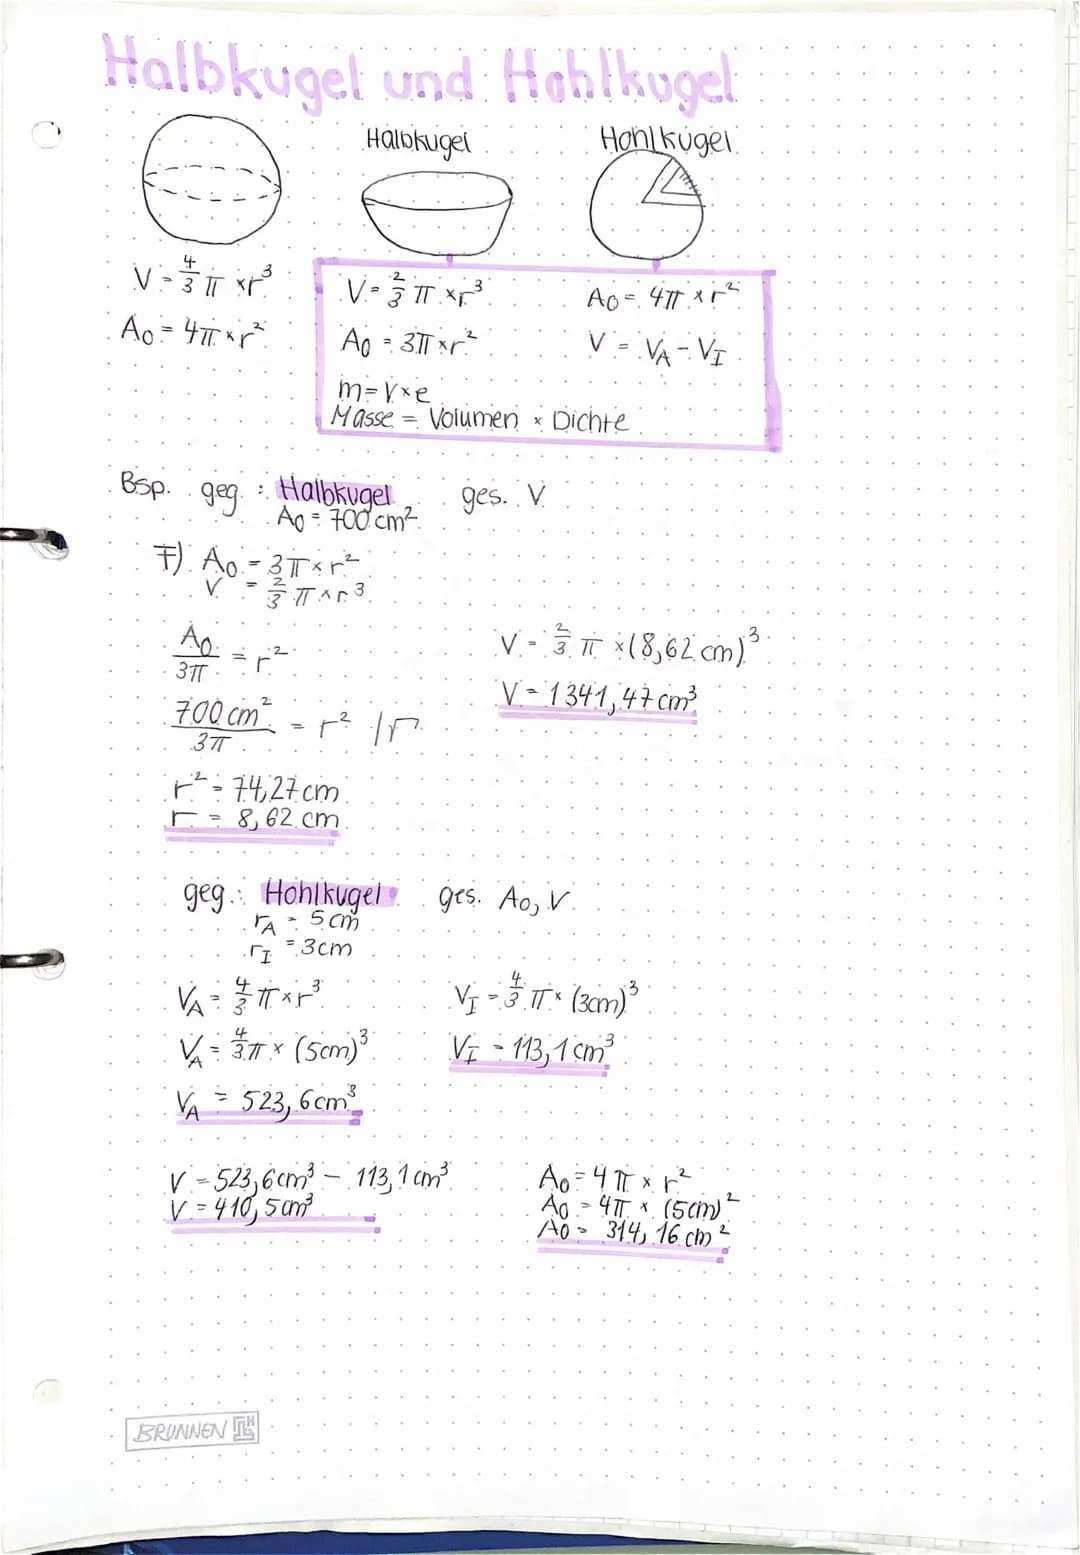 Halbkugel und Hohlkugel
Halbkugel
Hohlkugel
V = 4/3 π × r³
A₀ = 4π × r²
V = 2/3 π × r³
A₀ = 3π × r²
m = V × e
Masse = Volumen × Dichte
A₀ = 4π × r²
V = V_A - V_I
Bsp. geg.: Halbkugel ges. V
A₀ = 700 cm²
F) A₀ = 3π × r²
V = 2/3 π × r³
A₀/3π = r²
700 cm²/3π = r² /√
r² = 74,27 cm
r = 8,62 cm
V = 2/3 π × (8,62 cm)³
V = 1341,47 cm³
geg.: Hohlkugel ges. A₀, V
r_A = 5 cm
r_I = 3cm
V_A = 4/3 π × r³
V_A = 4/3 π × (5cm)³
V_A = 523,6 cm³
V_I = 4/3 π × (3cm)³
V_I = 113,1 cm³
V = 523,6 cm³ - 113,1 cm³
V = 410,5 cm³
A₀ = 4π × r²
A₀ = 4π × (5cm)²
A₀ = 314,16 cm²
BRUNNEN